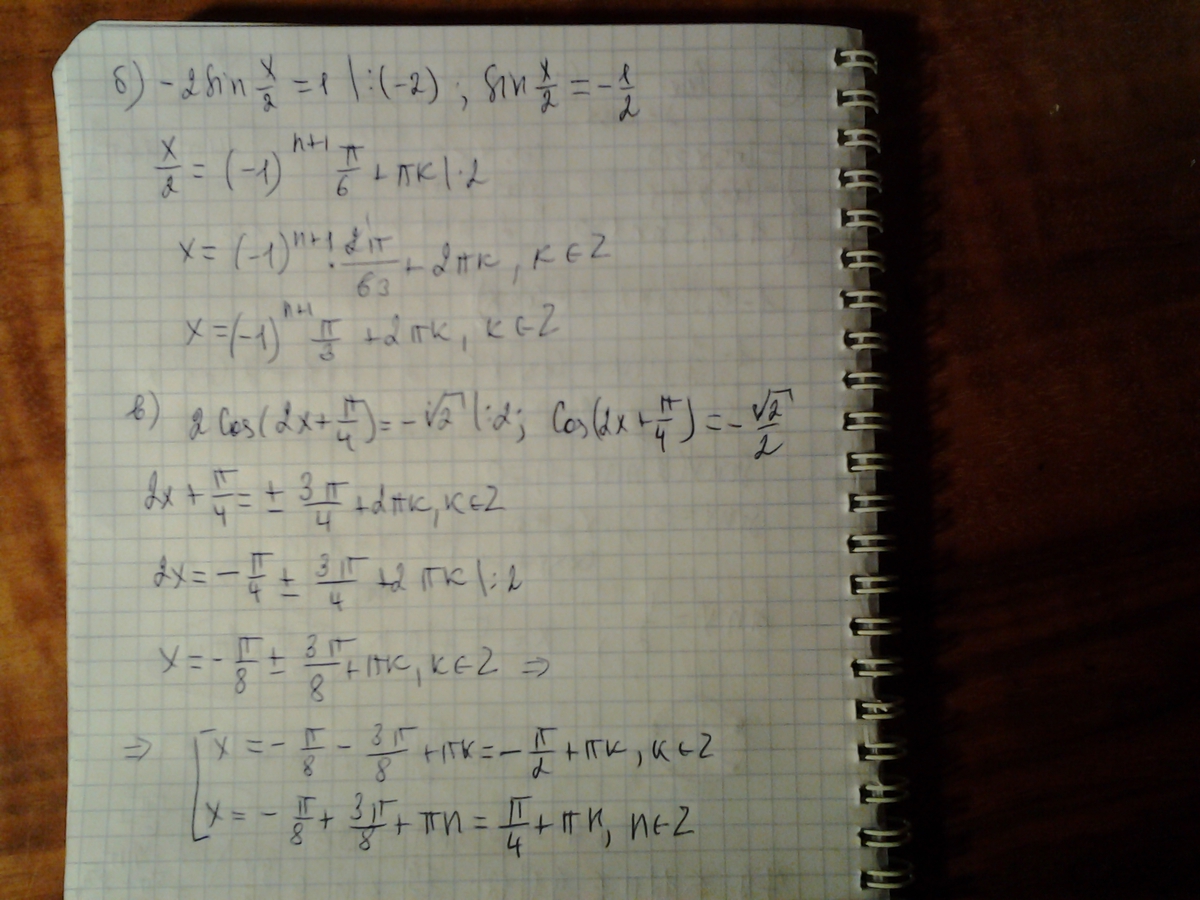 б) -2 sin x/2 = 1 |:(-2) ; sin x/2 = -1/2
x/2 = (-1)^(n+1) π/6 + πк |·2
x = (-1)^(n+1) · 2π/63 + 2πк, к∈Z
x = (-1)^(n+1) π/3 + 2πк, к∈Z
в) 2 cos(2x+π/4) = -√2 |:2; cos(2x+π/4) = -√2/2
2x + π/4 = ± 3π/4 + 2πк, к∈Z
2x = -π/4 ± 3π/4 + 2πк |:2
x = -π/8 ± 3π/8 + πк, к∈Z ⇒
⇒ [ x = -π/8 - 3π/8 + πк = -π/2 + πк, к∈Z
x = -π/8 + 3π/8 + πn = π/4 + πn, n∈Z